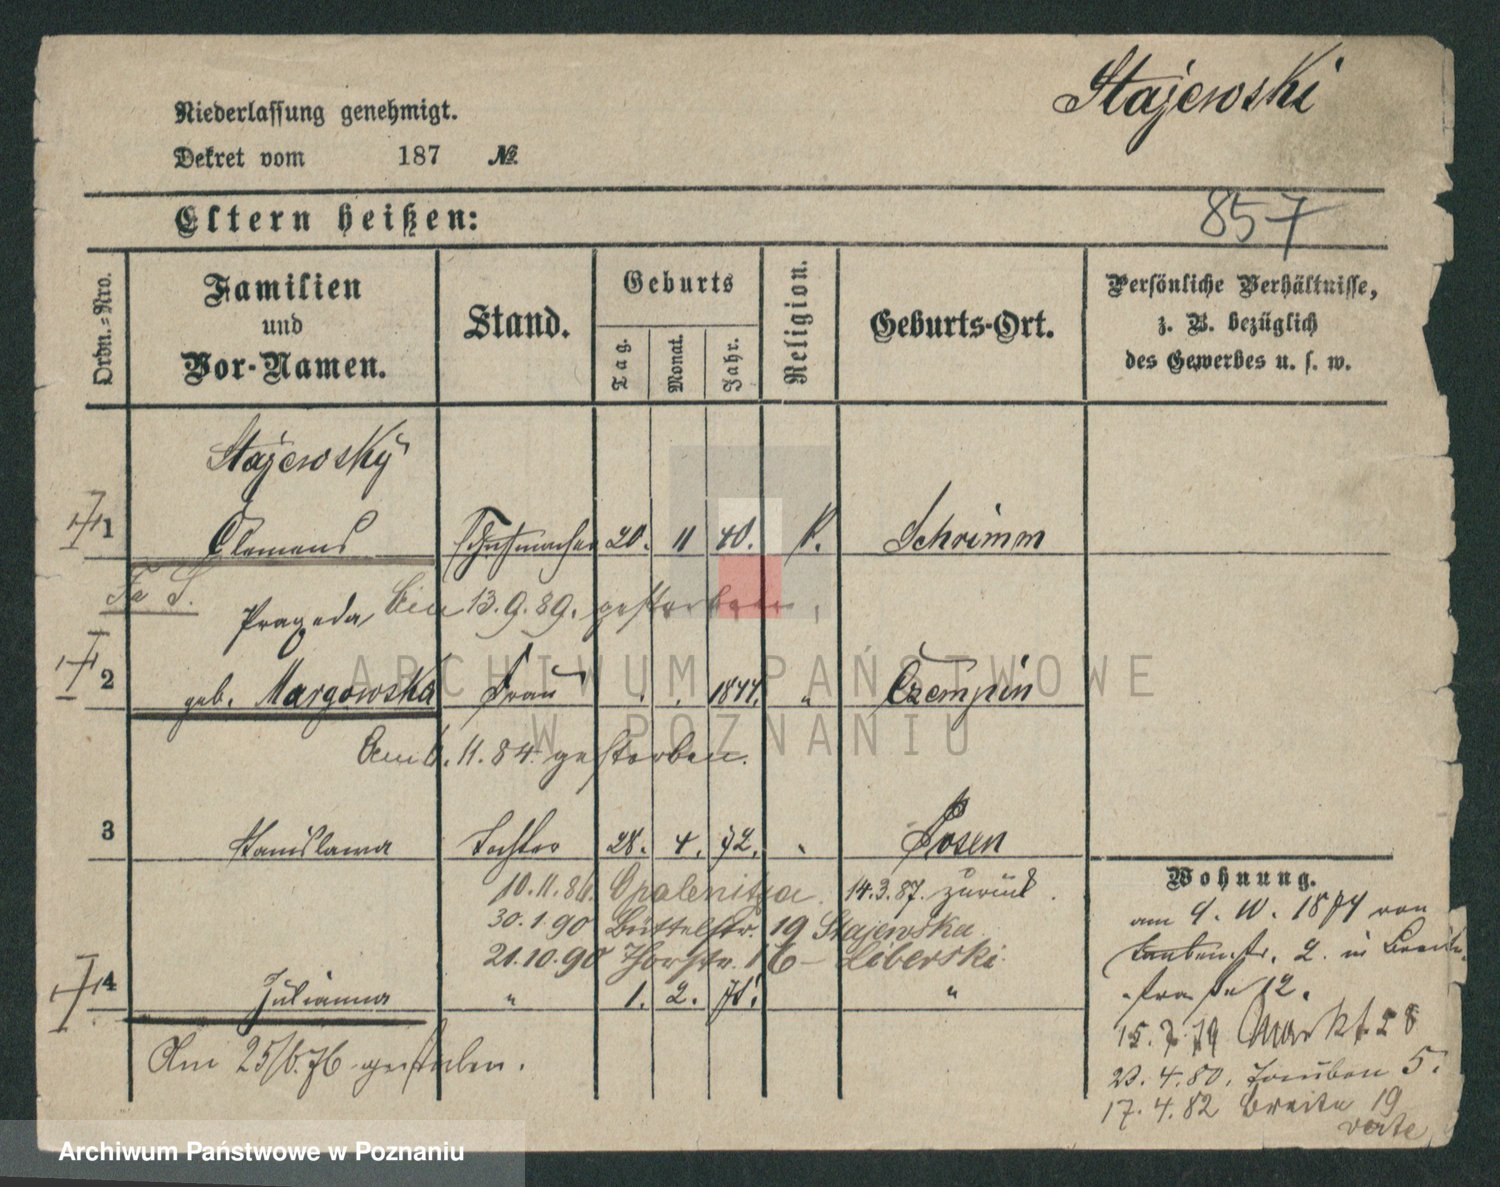 Stajewski
Niederlassung genehmigt.
Dekret vom 187 №
Eltern heißen:
857
Ordn.-Nro.
Familien
und
Vor-Namen.
Stand.
Geburts
Tag.
Monat.
Jahr.
Religion.
Geburts-Ort.
Persönliche Verhältnisse,
z. B. bezüglich
des Gewerbes u. s. w.
Stajewsky
1 Clemens Schuhmacher 20. 11 40. k. Schrimm
Prageda
13.9.89. gestorben,
2 geb. Margowska Frau . . 1844. " Czempin
Am 6.11.84 gestorben.
3 Stanislawa Tochter 28. 4. 72. " Posen
10.11.86. Opalenitza. 14.3.87. zurück.
30.1.90 Büttelstr. 19 Stajewska
21.10.90 Thorstr. 16 - Liberski
4 Julianna " 1. 2. 75. "
Am 25/6.76 gestorben.
Wohnung.
am 9. 10. 1874 von
Taubenstr. 2. in Breite-
straße 12.
15. 7. 79 Markt 58
23. 4. 80. Tauben 5.
17. 4. 82 Breite 19
verte
ARCHIWUM PAŃSTWOWE
W POZNANIU
Archiwum Państwowe w Poznaniu